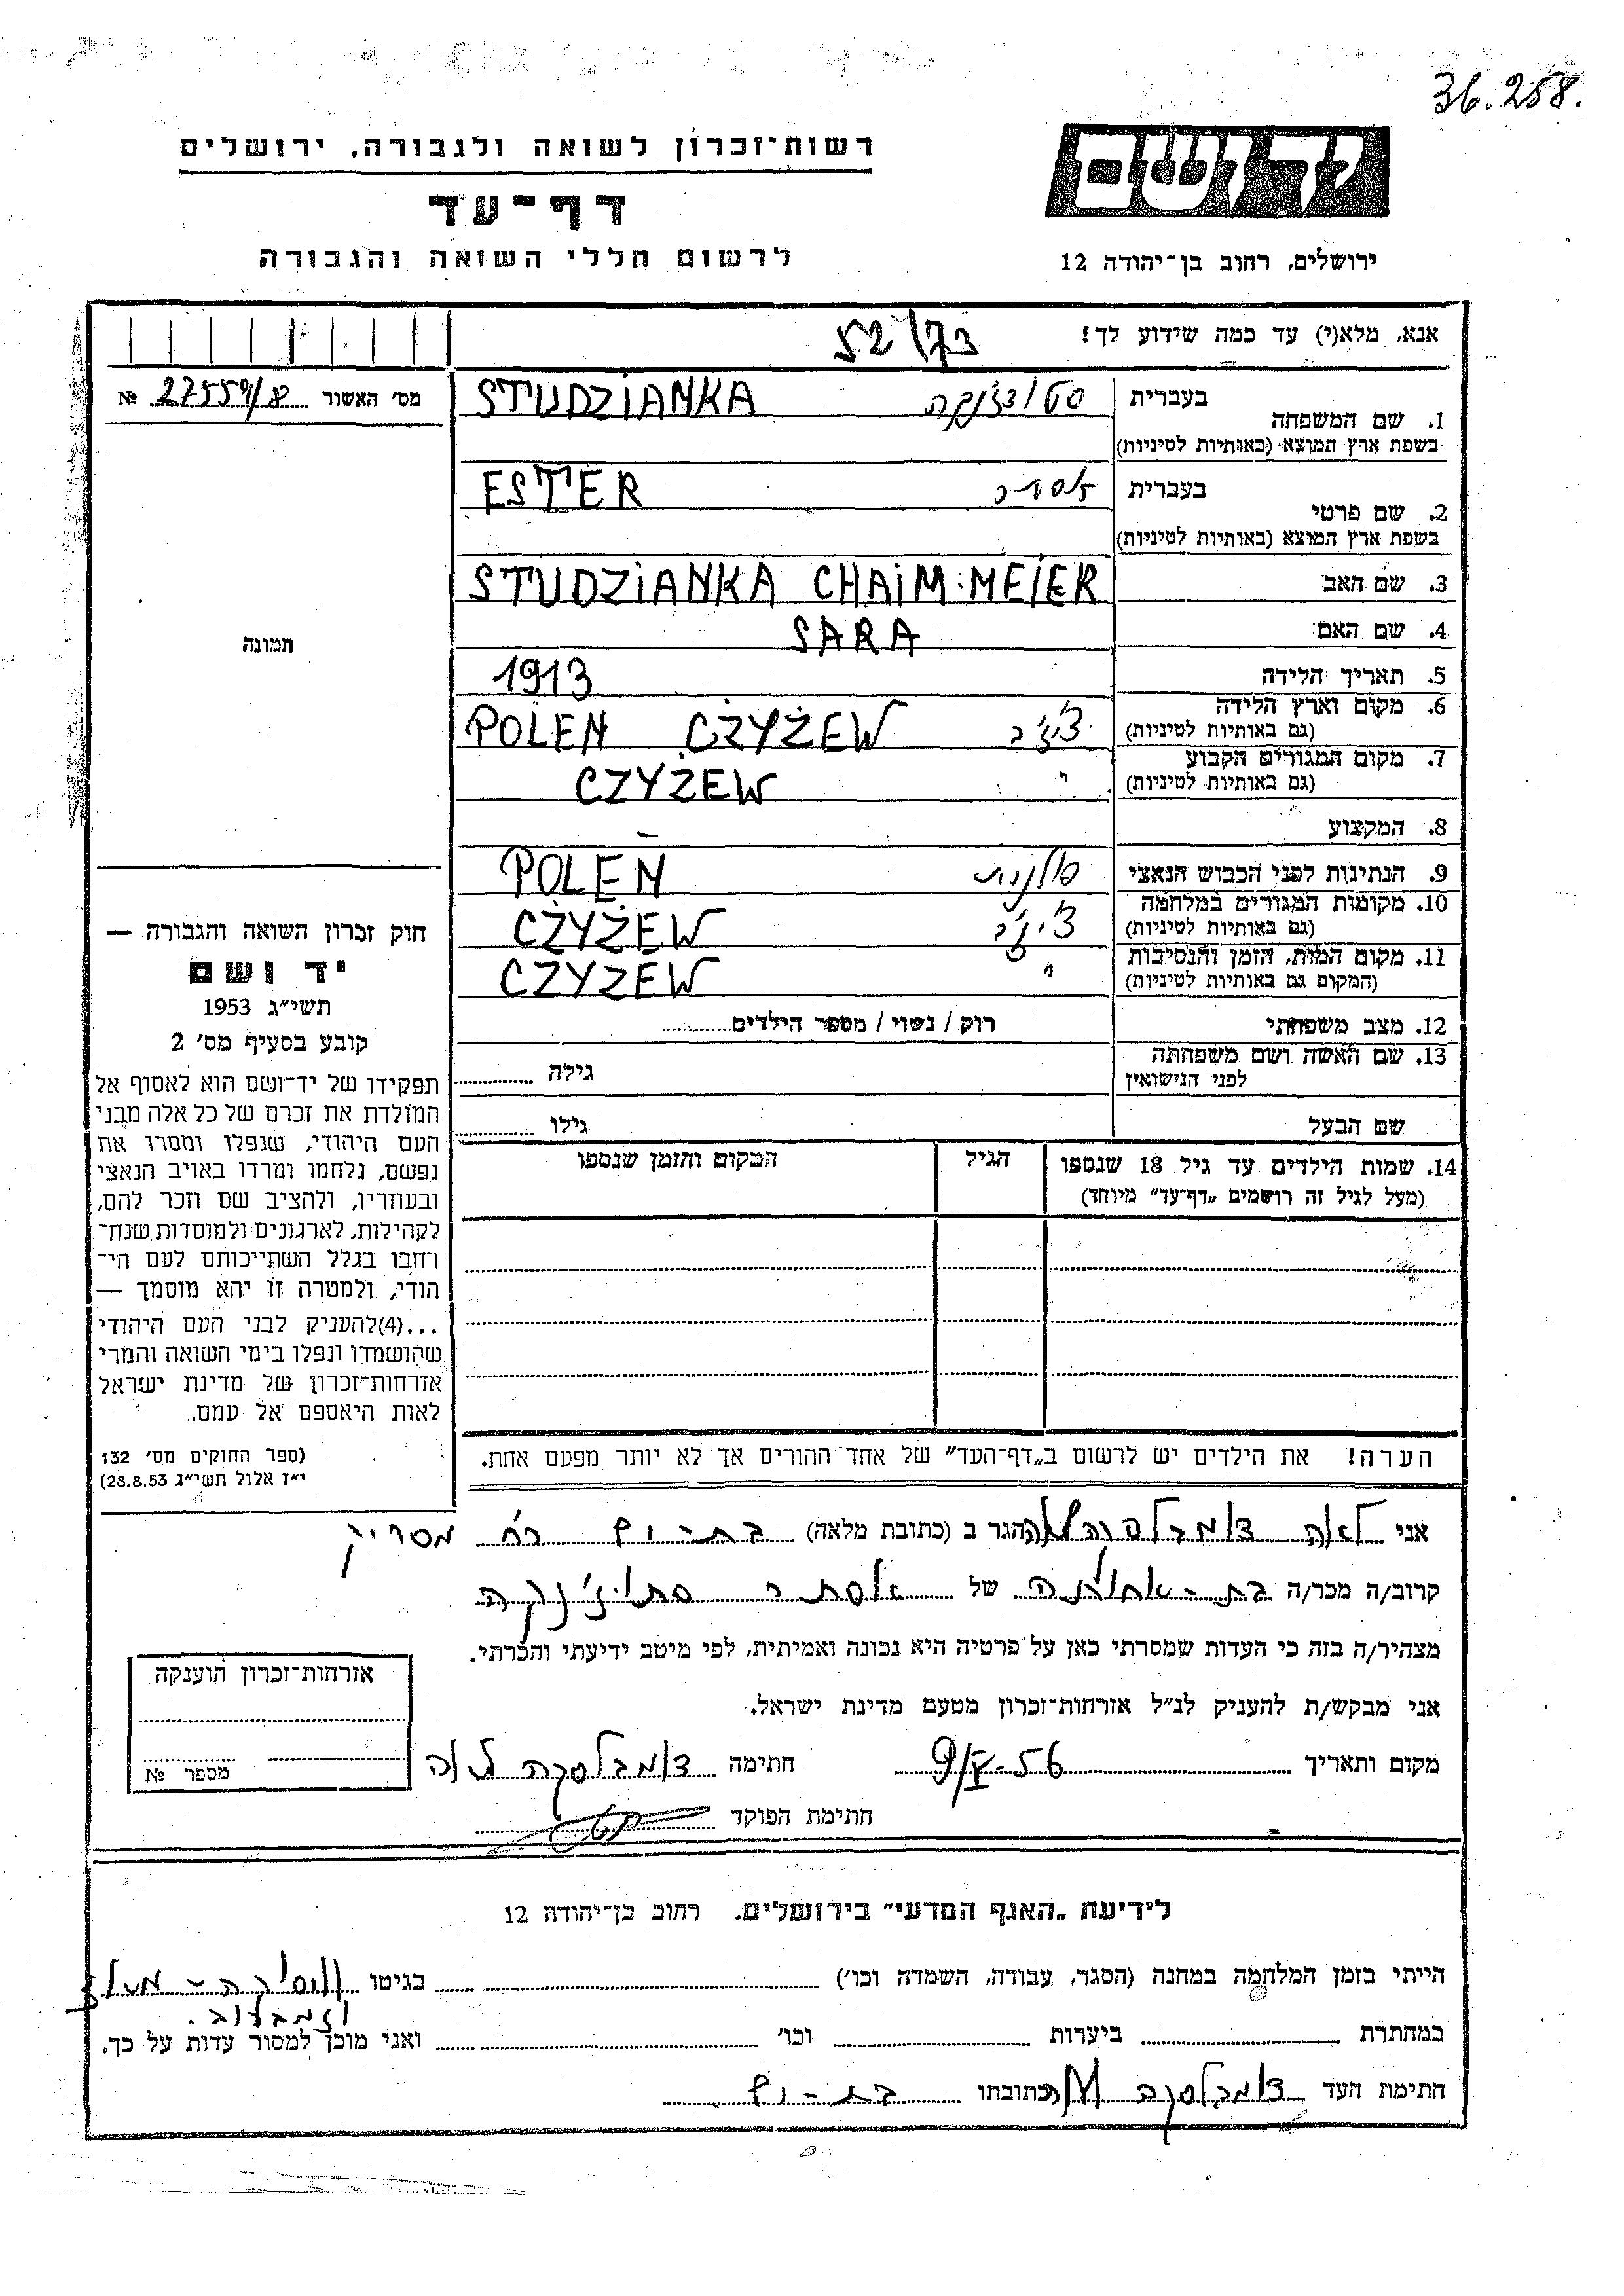 36.258.
יד ושם
רשות־זכרון לשואה ולגבורה, ירושלים
דף־עד
לרשום חללי השואה והגבורה
ירושלים, רחוב בן־יהודה 12
אנא, מלא(י) עד כמה שידוע לך! 52/73
מס׳ האשור 27559/8 №
תמונה
1. שם המשפחה בעברית
בשפת ארץ המוצא (באותיות לטיניות)
STUDZIANKA
2. שם פרטי בעברית אסתר
בשפת ארץ המוצא (באותיות לטיניות)
ESTER
3. שם האב STUDZIANKA CHAIM·MEIER
4. שם האם SARA
5. תאריך הלידה 1913
6. מקום וארץ הלידה
(גם באותיות לטיניות)
POLEN CŻYŻEW
7. מקום המגורים הקבוע
(גם באותיות לטיניות)
" CZYŻEW
8. המקצוע –
9. הנתינות לפני הכבוש הנאצי פולנית POLEN
10. מקומות המגורים במלחמה
(גם באותיות לטיניות)
CŻYŻEW
11. מקום המות, הזמן והנסיבות
(המקום גם באותיות לטיניות)
" CZYZEW
12. מצב משפחתי רוק / נשוי / מספר הילדים
13. שם האשה ושם משפחתה
לפני הנישואין
גילה
שם הבעל גילו
14. שמות הילדים עד גיל 18 שנספו
(מעל לגיל זה רושמים „דף־עד" מיוחד)
הגיל
המקום והזמן שנספו
חוק זכרון השואה והגבורה —
יד ושם
תשי״ג 1953
קובע בסעיף מס׳ 2
תפקידו של יד־ושם הוא לאסוף אל
המולדת את זכרם של כל אלה מבני
העם היהודי, שנפלו ומסרו את
נפשם, נלחמו ומרדו באויב הנאצי
ובעוזריו, ולהציב שם וזכר להם,
לקהילות, לארגונים ולמוסדות שנח־
רחבו בגלל השתייכותם לעם הי־
הודי, ולמטרה זו יהא מוסמך —
...(4)להעניק לבני העם היהודי
שהושמדו ונפלו בימי השואה והמרי
אזרחות־זכרון של מדינת ישראל
לאות היאספם אל עמם.
(ספר החוקים מס׳ 132
י״ז אלול תשי״ג 28.8.53)
הערה! את הילדים יש לרשום ב„דף־העד" של אחד ההורים אך לא יותר מפעם אחת.
אני לאה הגר ב (כתובת מלאה) בת-ים רח׳ מסריק
קרוב/ה מכר/ה של אסתר
מצהיר/ה בזה כי העדות שמסרתי כאן על פרטיה היא נכונה ואמיתית, לפי מיטב ידיעתי והכרתי.
אני מבקש/ת להעניק לנ״ל אזרחות־זכרון מטעם מדינת ישראל.
מקום ותאריך 9/V-56 חתימה לאה
חתימת הפוקד
אזרחות־זכרון הוענקה
מספר №
לידיעת „האגף המדעי" בירושלים, רחוב בן־יהודה 12
הייתי בזמן המלחמה במחנה (הסגר, עבודה, השמדה וכו׳) בגיטו
במחתרת ביערות וכו׳ ואני מוכן למסור עדות על כך.
חתימת העד כתובתו בת-ים